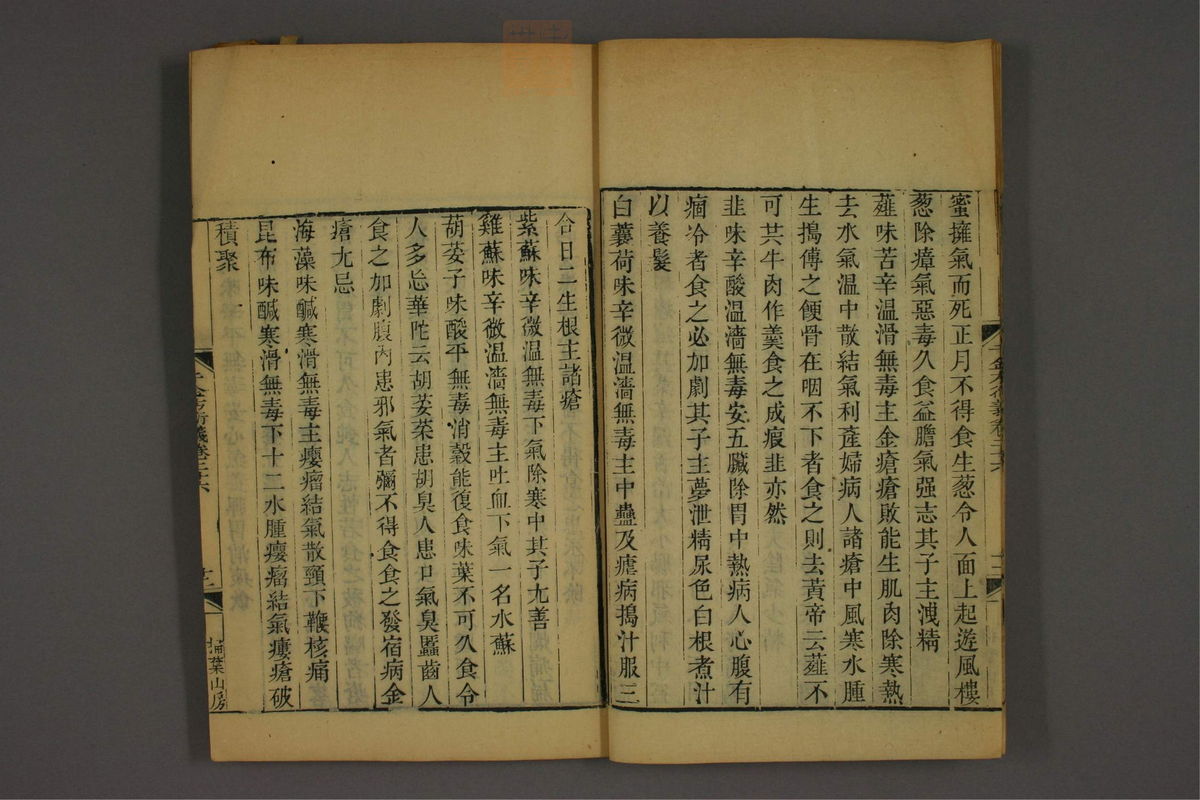 蜜擁氣而死正月不得食生葱令人面上起遊風樓
葱除瘴氣惡毒久食益膽氣强志其子主洩精
薤味苦辛溫滑無毒主金瘡瘡敗能生肌肉除寒熱
去水氣溫中散結氣利產婦病人諸瘡中風寒水腫
生搗傅之鯁骨在咽不下者食之則去黃帝云薤不
可共牛肉作羹食之成瘕韭亦然
韭味辛酸溫濇無毒安五臟除胃中熱病人心腹有
痼冷者食之必加劇其子主夢泄精尿色白根煮汁
以養髮
白蘘荷味辛微溫濇無毒主中蠱及瘧病搗汁服三
合日二生根主諸瘡
紫蘇味辛微溫無毒下氣除寒中其子尤善
雞蘇味辛微溫濇無毒主吐血下氣一名水蘇
胡荽子味酸平無毒消穀能復食味葉不可久食令
人多忘華陀云胡荽菜患胡臭人患口氣臭䘌齒人
食之加劇腹內患邪氣者彌不得食食之發宿病金
瘡尤忌
海藻味鹹寒滑無毒主癭瘤結氣散頸下鞕核痛
昆布味鹹寒滑無毒下十二水腫癭瘤結氣瘻瘡破
積聚
千金方衍義卷二十六
掃葉山房